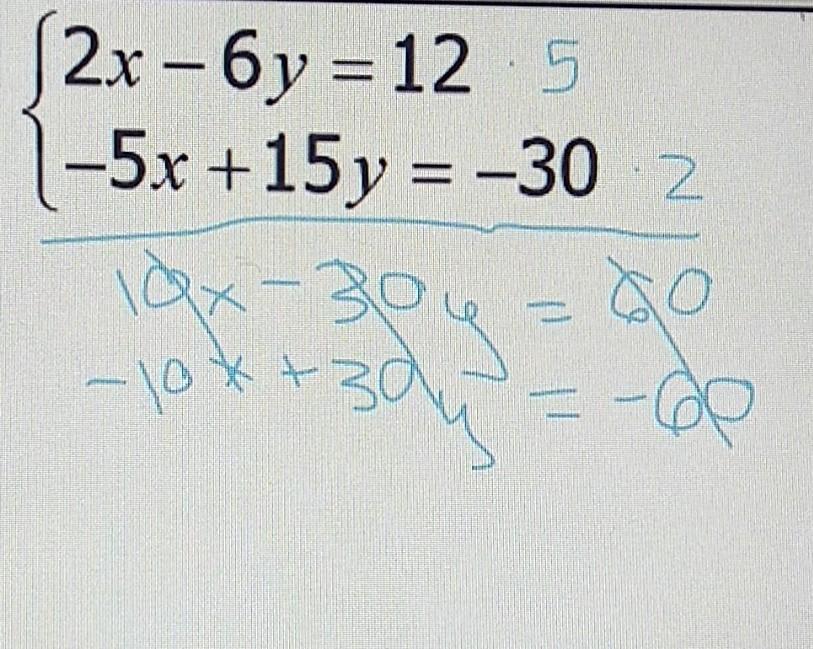 2x − 6y = 12 · 5
−5x + 15y = −30 · 2
10x − 30y = 60
−10x + 30y = −60